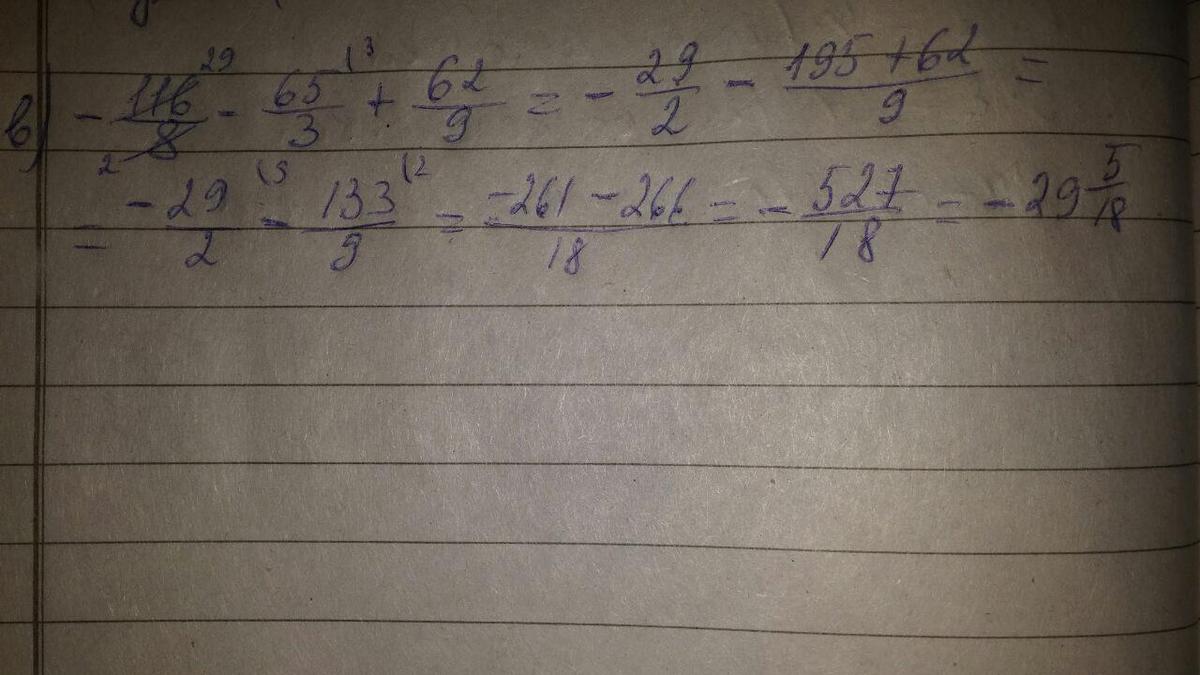 в) - 116/8 29 2 - 65/3 (3 + 62/9 = - 29/2 - 195+62/9 =
= -29/2 (9 - 133/9 (2 = -261-266/18 = - 527/18 = - 29 5/18